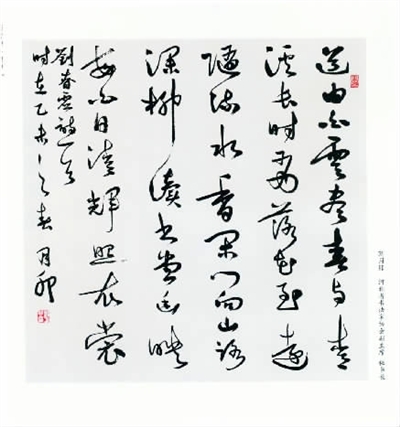 道由白雲尽春与青
溪长时有落花至遠
随流水香闲门向山路
深柳讀书堂幽映
每白日清輝照衣裳
劉眘虛詩一首
时在乙未之春